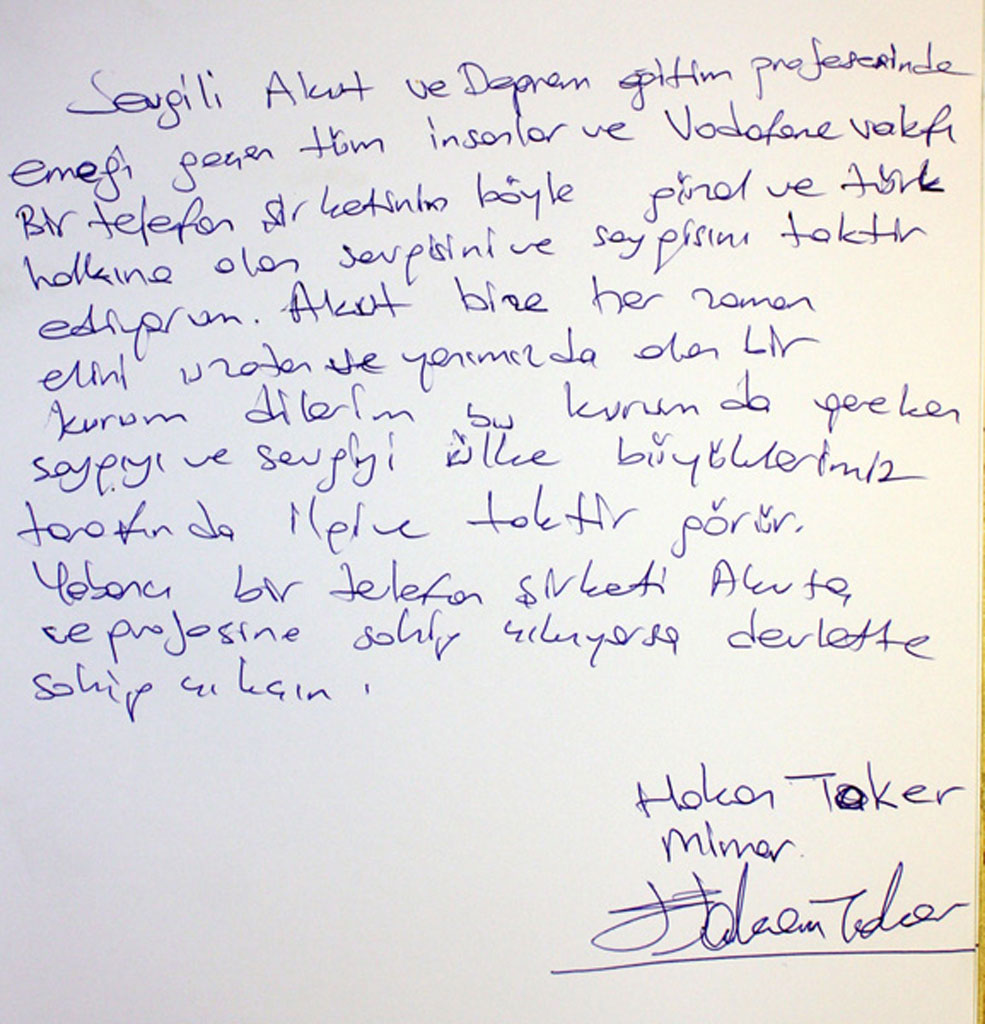 Sevgili Akut ve Deprem eğitim profesesinde
emeği geçen tüm insanlar ve Vodafone vakfı
Bir telefon şirketinin böyle güzel ve türk
halkına olan sevgisini ve saygısını taktir
ediyorum. Akut bize her zaman
elini uzatan ve yanımızda olan bir
kurum dilerim bu kurum da gereken
saygıyı ve sevgiyi ülke büyüklerimiz
tarafında ilgi ve taktir görür.
Yabancı bir telefon şirketi Akuta,
ve projesine sahip çıkıyorsa devlette
sahip çıksın.
Hakan Toker
Mimar.
Hakan Toker